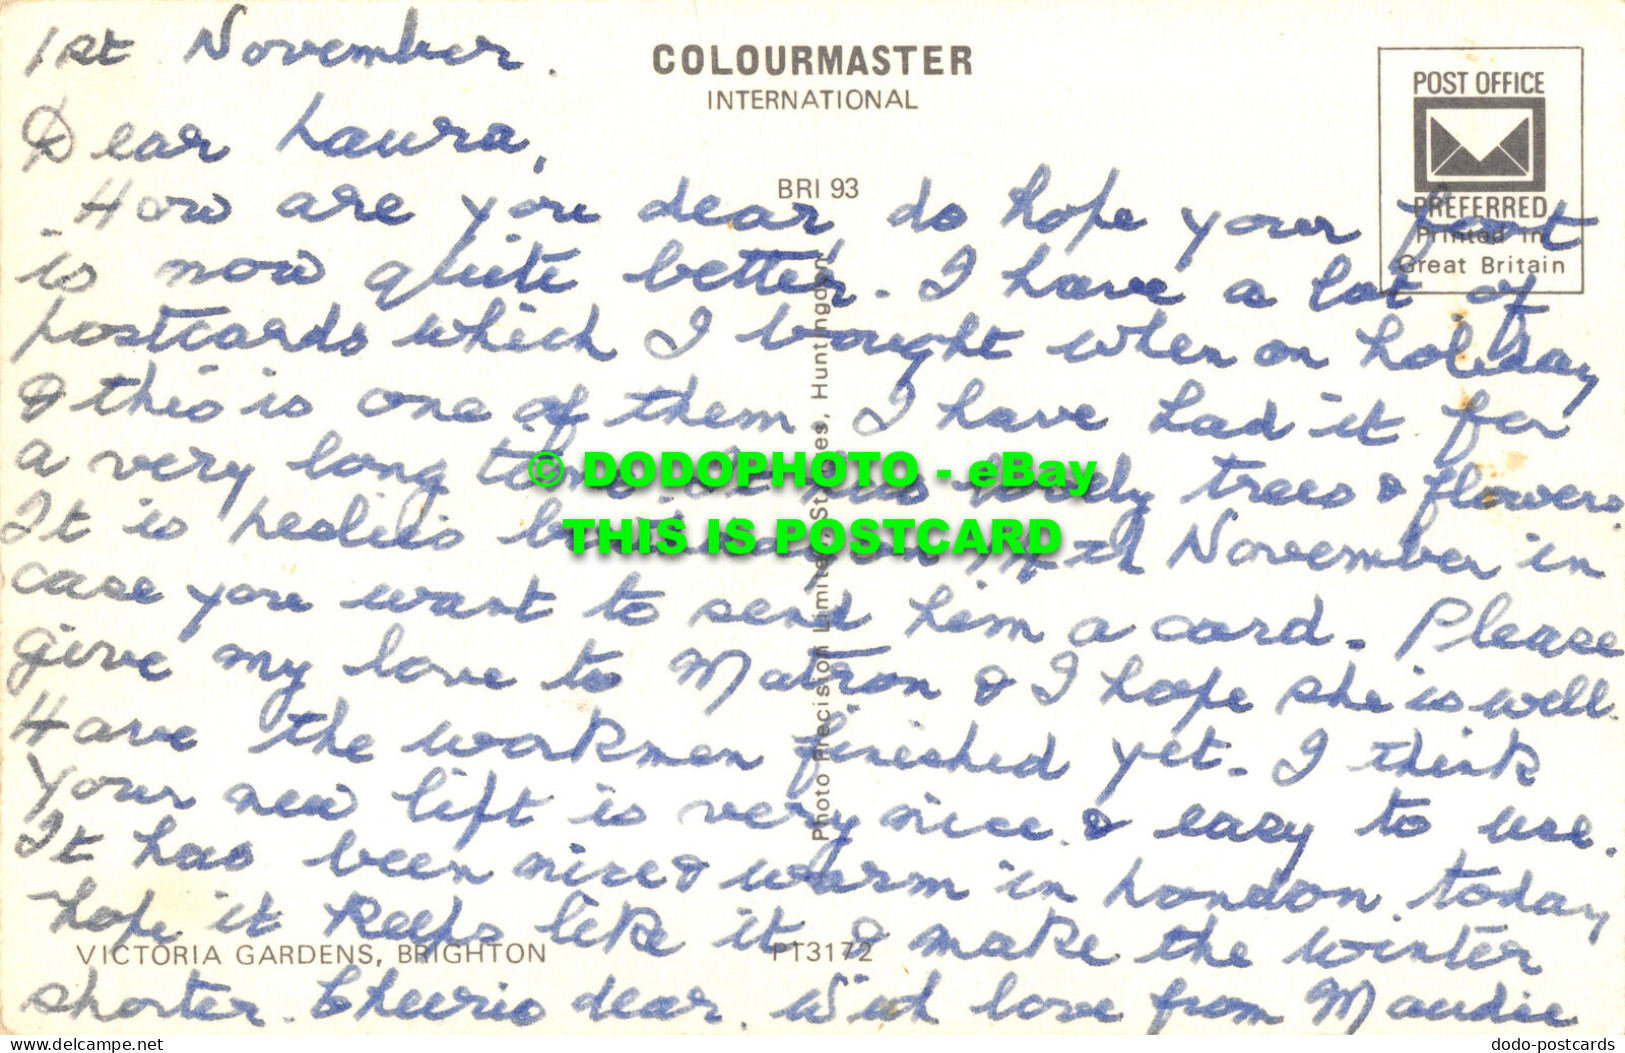 1st November.
COLOURMASTER
INTERNATIONAL
POST OFFICE
PREFERRED
Printed in
Great Britain
BRI 93
Dear Laura,
How are you dear do hope your foot
is now quite better. I have a lot of
postcards which I bought when on holiday
& this is one of them. I have had it for
a very long time. It has lovely trees & flowers.
It is Leslies birthday on November in
case you want to send him a card. Please
give my love to Matron & I hope she is well.
Have the workmen finished yet. I think
your new lift is very nice & easy to use.
It has been nice & warm in London today
hope it keeps like it & make the winter
shorter. Cheerio dear. With love from Maudie
Photo Precision Limited, St. Ives, Huntingdon
VICTORIA GARDENS, BRIGHTON
PT3172
© DODOPHOTO - eBay
THIS IS POSTCARD
www.delcampe.net
dodo-postcards